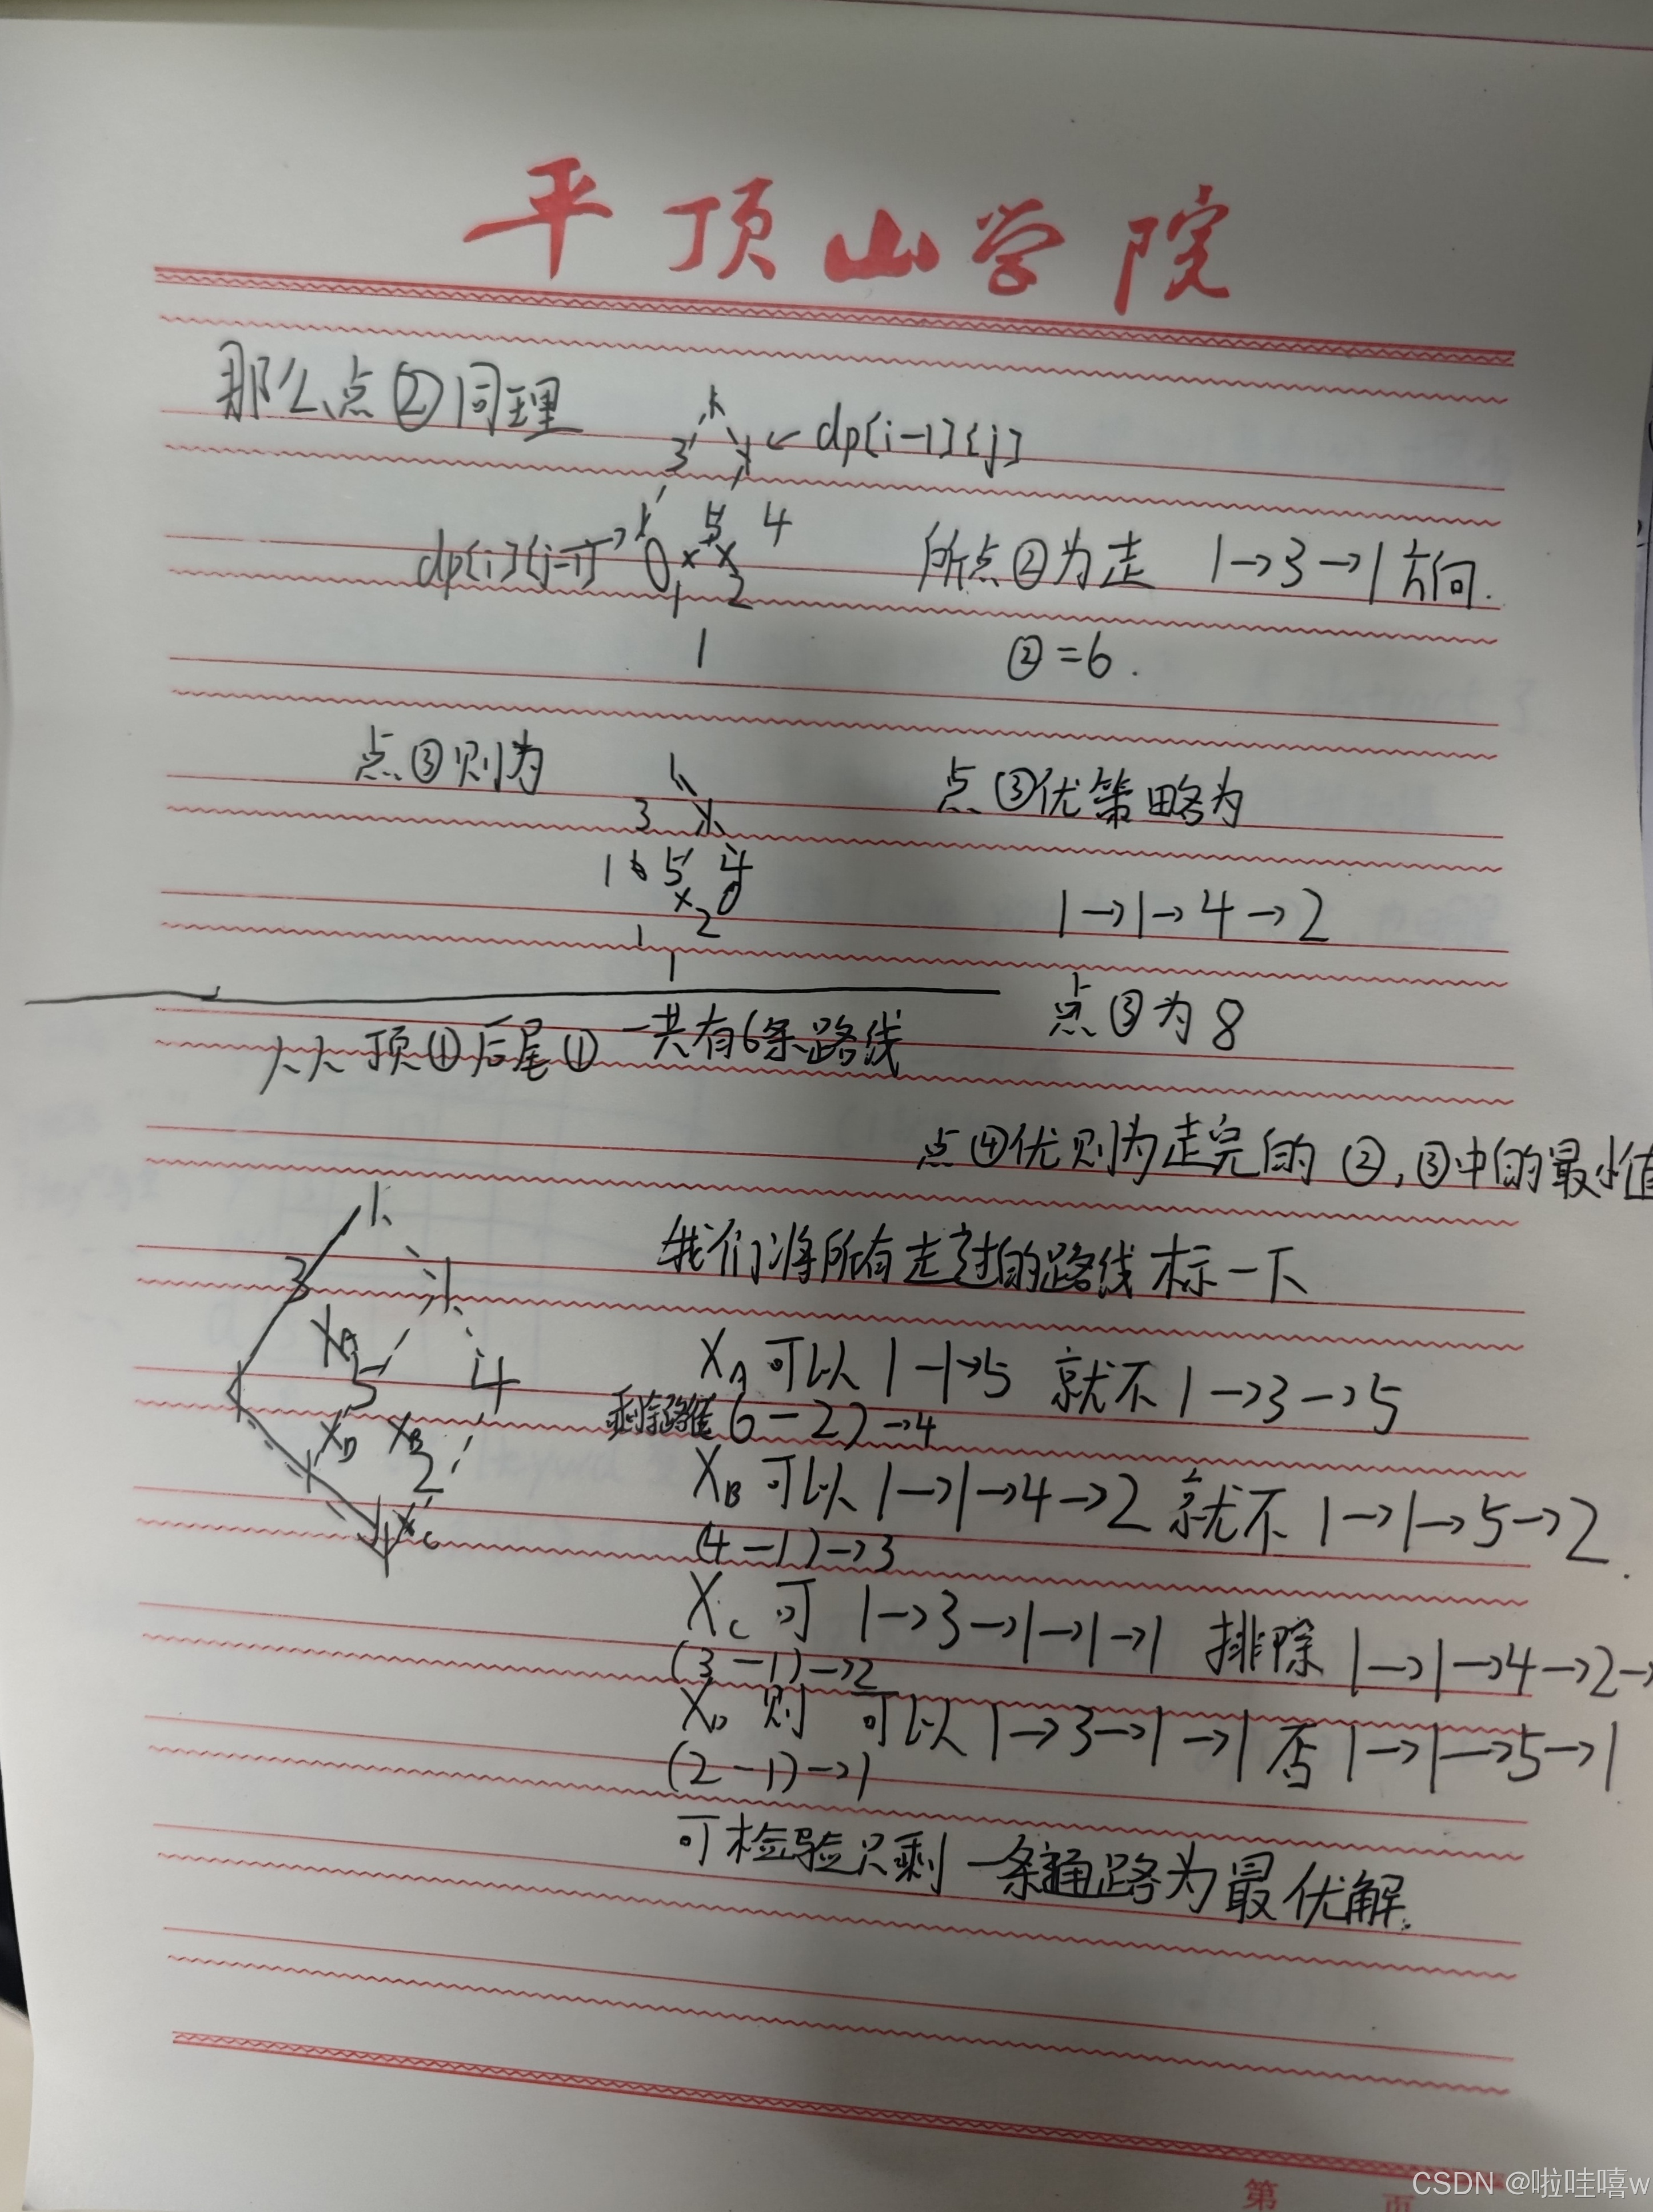 平顶山学院
那么点②同理
1
3 1 ← dp[i-1][j]
1 5 4
dp[i][j-1] → 0 × ×
1 2
1
所点②为走 1→3→1方向.
②=6.
点③则为
1
3 1
1 5 4
× 0
2
1
1
点③优策略为
1→1→4→2
点③为8
从从顶①后尾①一共有6条路线
点④优则为走完的②,③中的最小值
我们将所有走过的路线标一下
1
3 1
XA
1 5 4
XD XB
1 2
1 XC
XA 可以 1-1→5 就不 1→3→5
(6-2)→4
XB 可以 1→1→4→2 就不 1→1→5→2.
(4-1)→3
XC 可 1→3→1→1→1 排除 1→1→4→2→
(3-1)→2
XD 则 可以 1→3→1→1 否 1→1→5→1
(2-1)→1
可检验只剩一条通路为最优解.
第 页
CSDN @啦哇嘻w